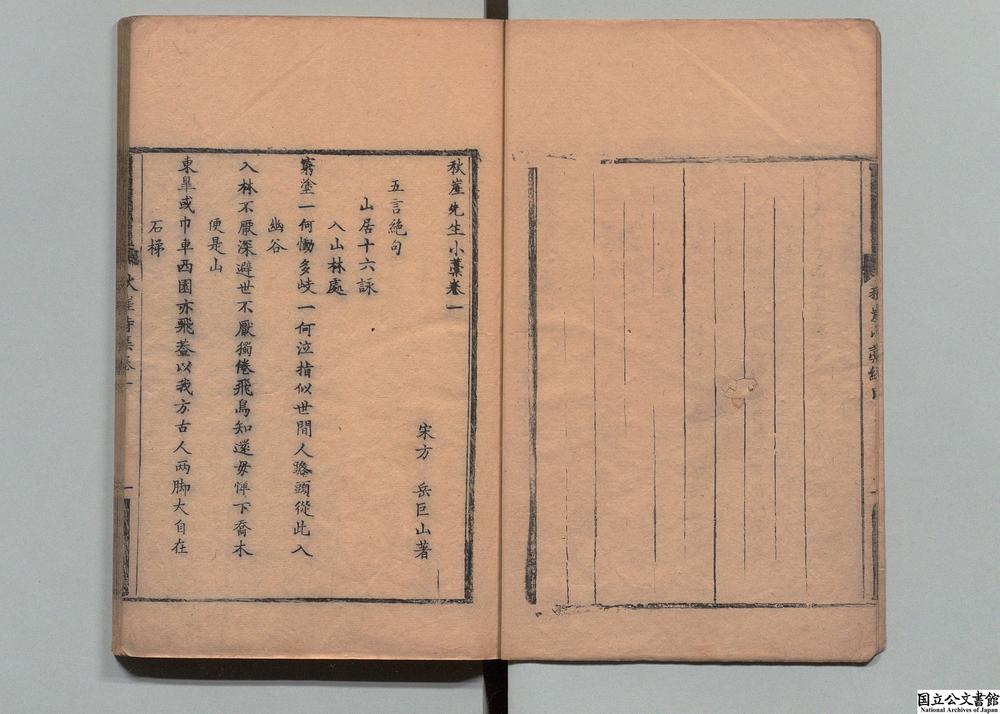 秋崖先生小藁卷一
宋方 岳巨山著
五言絶句
山居十六詠
入山林處
窮塗一何慟多岐一何泣指似世間人路頭從此入
幽谷
入林不厭深避世不厭獨倦飛鳥知還毋憚下喬木
便是山
東皐或巾車西園亦飛蓋以我方古人两脚大自在
石梯
国立公文書館
National Archives of Japan